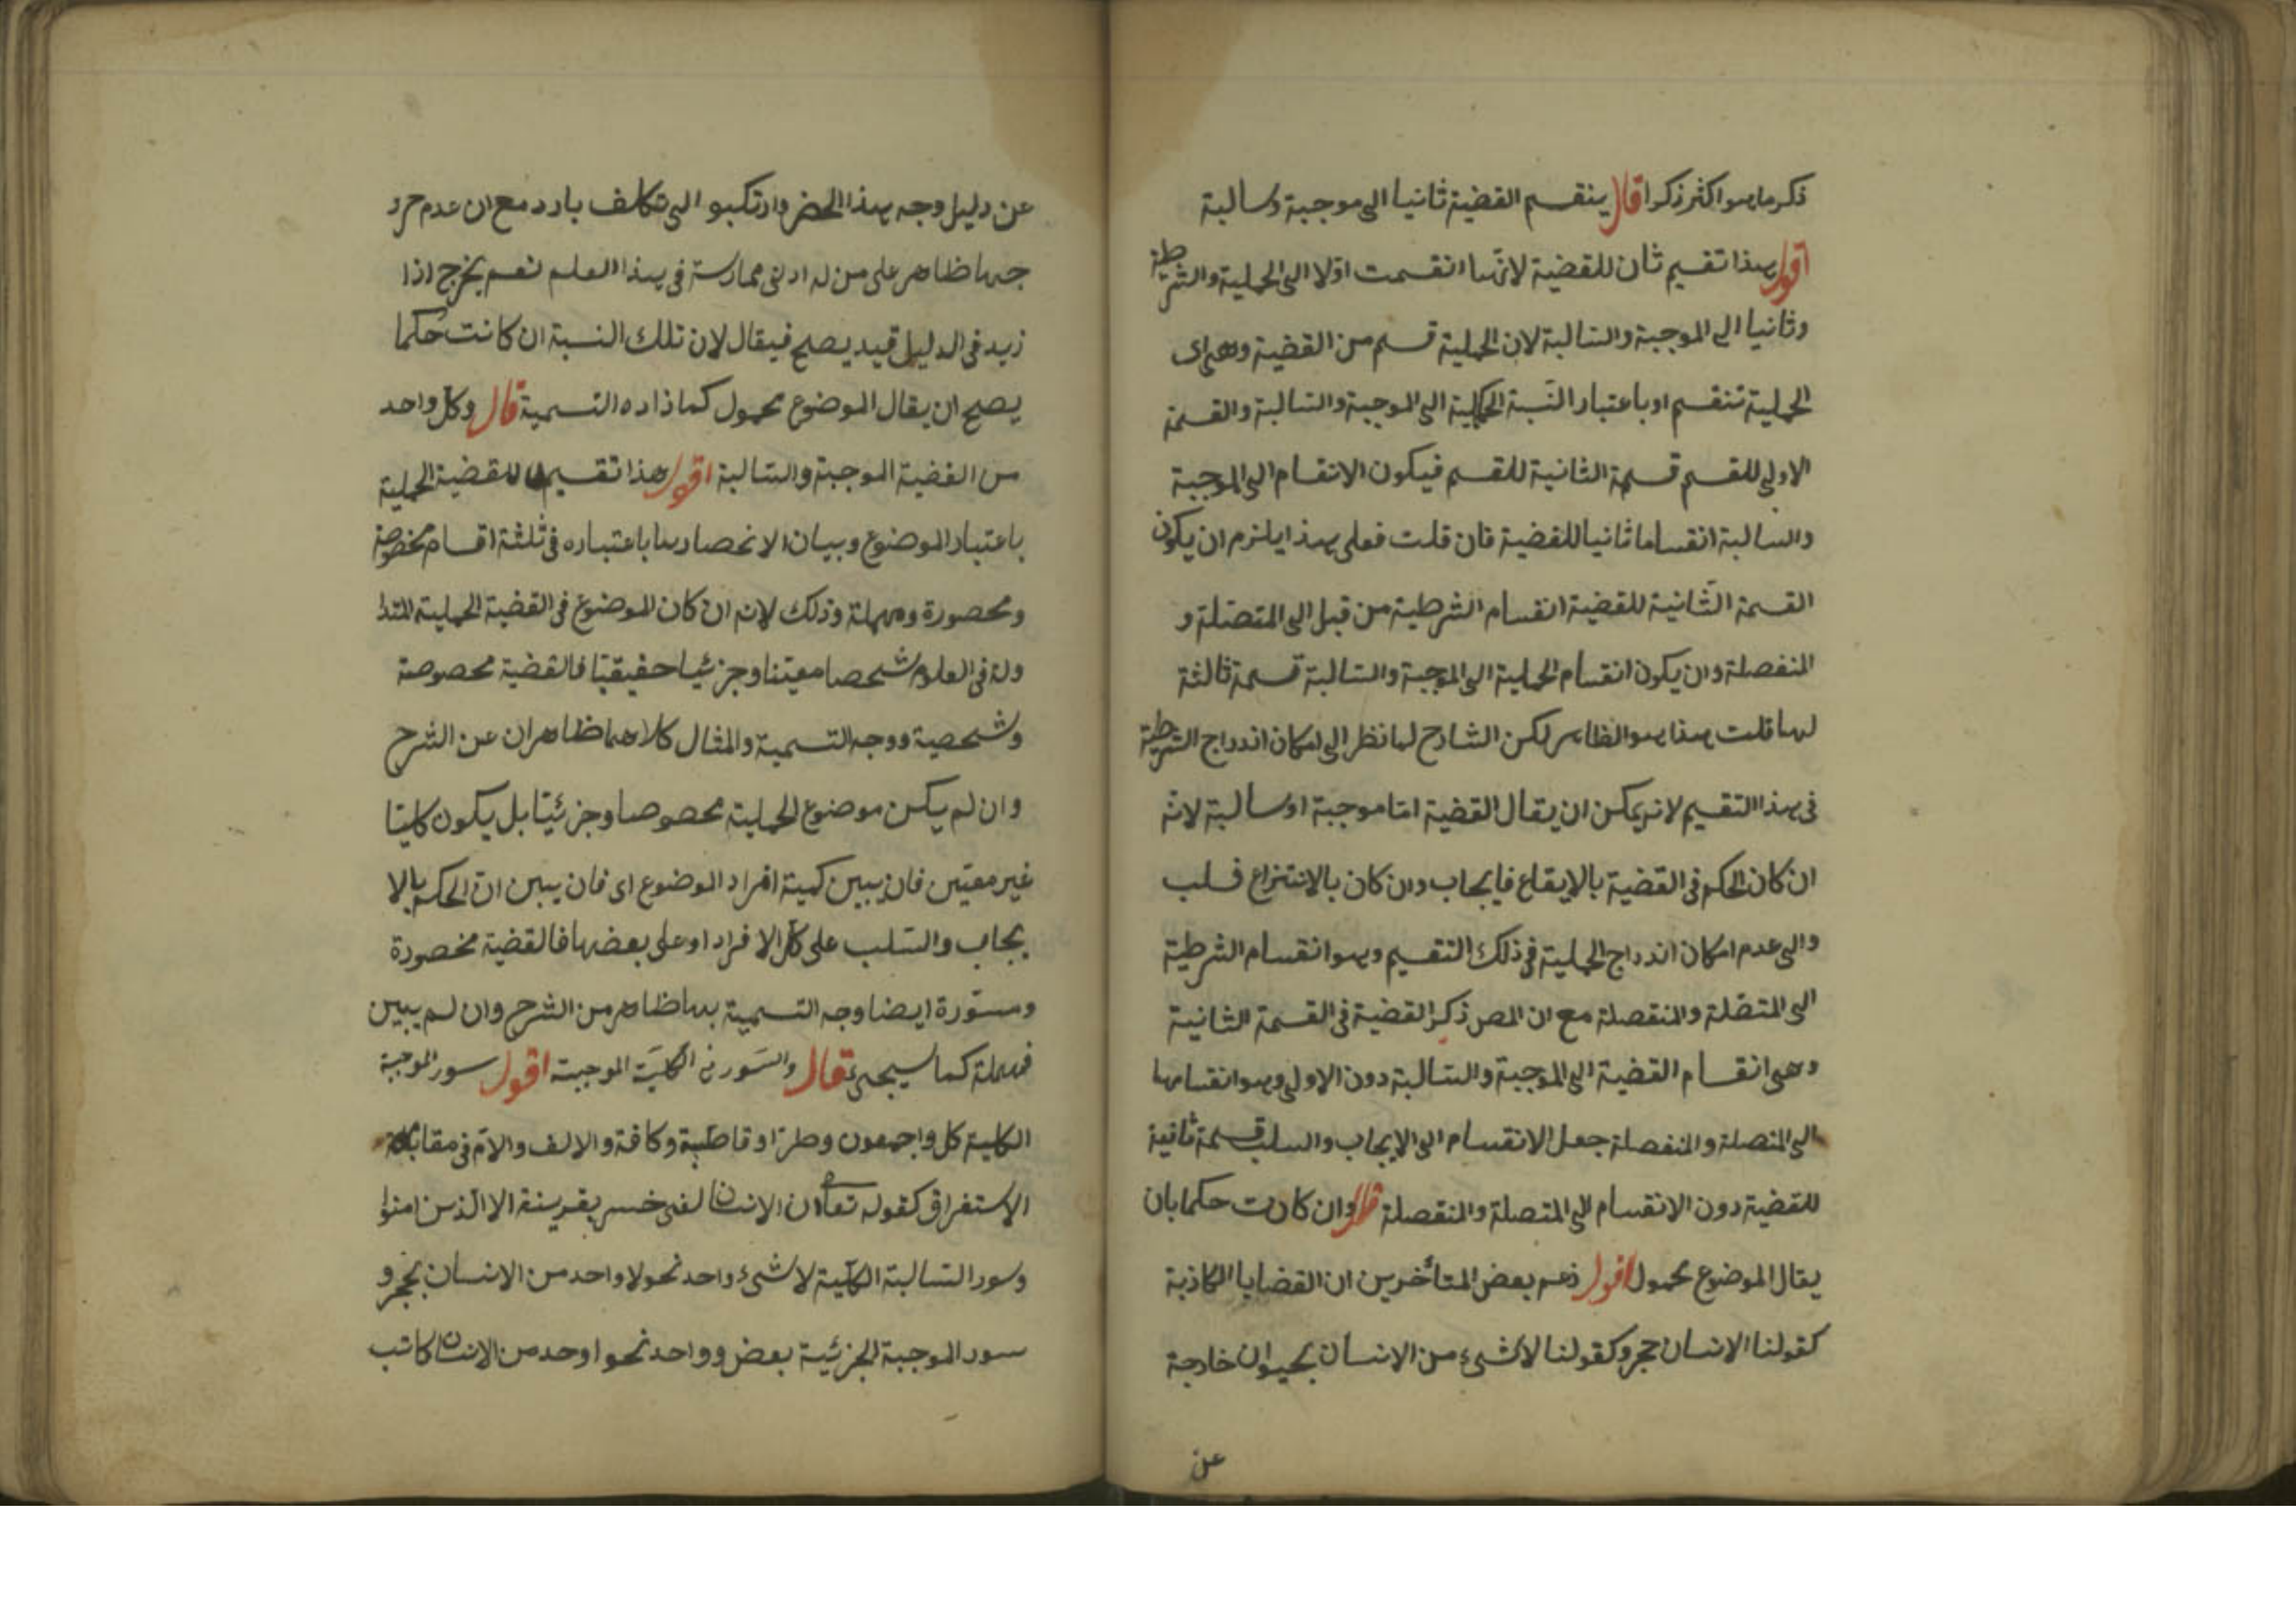 ذكر ما هو اكثر ذكرا قال ينقسم القضية ثانيا الى موجبة وسالبة
اقول هذا تقسيم ثان للقضية لانها انقسمت اولا الى الحملية والشرطية
وثانيا الى الموجبة والسالبة لان الحملية قسم من القضية وهى اى
الحملية تنقسم او باعتبار النسبة الحكمية الى الموجبة والسالبة والقسمة
الاولى للقسم قسمة الثانية للقسم فيكون الانقسام الى الموجبة
والسالبة انقساما ثانيا للقضية فان قلت فعلى هذا يلزم ان يكون
القسمة الثانية للقضية انقسام الشرطية من قبل الى المتصلة و
المنفصلة وان يكون انقسام الحملية الى الموجبة والسالبة قسمة ثالثة
لها قلت هذا هو الظاهر لكن الشارح لما نظر الى امكان اندراج الشرطية
فى هذا التقسيم لانه يمكن ان يقال القضية اما موجبة او سالبة لانه
ان كان الحكم فى القضية بالايقاع فايجاب وان كان بالانتزاع فسلب
والى عدم امكان اندراج الحملية فى ذلك التقسيم وهو انقسام الشرطية
الى المتصلة والمنفصلة مع ان المص ذكر القضية فى القسمة الثانية
وهى انقسام القضية الى الموجبة والسالبة دون الاولى وهو انقسامها
الى المتصلة والمنفصلة جعل الانقسام الى الايجاب والسلب قسمة ثانية
للقضية دون الانقسام الى المتصلة والمنفصلة قال وان كانت حكما بان
يقال الموضوع محمول اقول زعم بعض المتأخرين ان القضايا الكاذبة
كقولنا الانسان حجر وكقولنا لا شىء من الانسان بحيوان خارجة
عن
عن دليل وجه هذا الحصر وارتكبو الى تكلف بارد مع ان عدم خرو
جها ظاهر على من له ادنى ممارسة فى هذا العلم نعم يخرج اذا
زيد فى الدليل قيد يصلح فيقال لان تلك النسبة ان كانت حكما
يصلح ان يقال الموضوع محمول كما زاده التسمية قال وكل واحد
من القضية الموجبة والسالبة اقول هذا تقسيم للقضية الحملية
باعتبار الموضوع وبيان الانحصارها باعتباره فى ثلثة اقسام مخصوصة
ومحصورة ومهملة وذلك لانه ان كان الموضوع فى القضية الحملية المتدا
ولة فى العلوم شخصا معينا وجزئيا حقيقيا فالقضية مخصوصة
وشخصية ووجه التسمية والمثال كلاهما ظاهران عن الشرح
وان لم يكن موضوع الحملية مخصوصا وجزئيا بل يكون كليا
غير معين فان يبين كمية افراد الموضوع اى فان يبين ان الحكم بالا
يجاب والسلب على كل الافراد او على بعضها فالقضية محصورة
ومسورة ايضا وجه التسمية بها ظاهر من الشرح وان لم يبين
فمهملة كما سيجىء قال والسور فى الكلية الموجبة اقول سور الموجبة
الكلية كل واجمعون وطرا وقاطبة وكافة والالف والام فى مقابلة
الاستغراق كقوله تعا ان الانسان لفى خسر بقرينة الا الذين امنوا
وسور السالبة الكلية لا شىء واحد نحو لا واحد من الانسان بحجر و
سور الموجبة الجزئية بعض وواحد نحو اوحد من الانسان كاتب